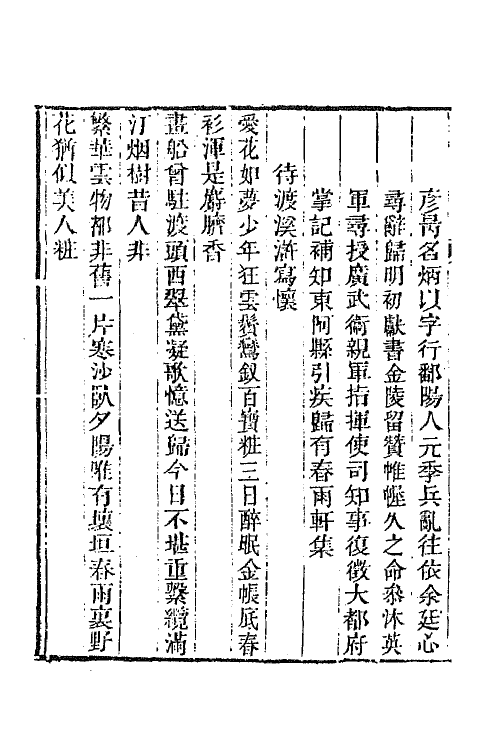 彥昺名炳以字行鄱陽人元季兵亂往依余廷心
尋辭歸明初獻書金陵留贊帷幄久之命叅沐英
軍尋授廣武衞親軍指揮使司知事復徵大都府
掌記補知東阿縣引疾歸有春雨軒集
待渡溪滸寫懷
愛花如夢少年狂雲鬢鸞釵百寶粧三日醉眠金帳底春
衫渾是麝臍香
畫船曾駐渡頭西翠黛凝歌憶送歸今日不堪重繫纜滿
汀烟樹昔人非
繁華雲物都非舊一片寒沙臥夕陽唯有壞垣春雨裏野
花猶似美人粧